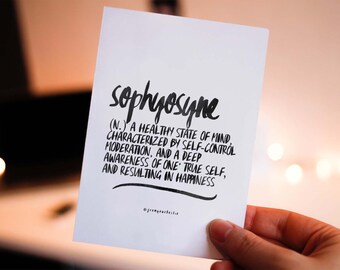 sophyosyne
(N.) A HEALTHY STATE OF MIND,
CHARACTERIZED BY SELF-CONTROL,
MODERATION, AND A DEEP
AWARENESS OF ONE' TRUE SELF,
AND RESULTING IN HAPPINESS